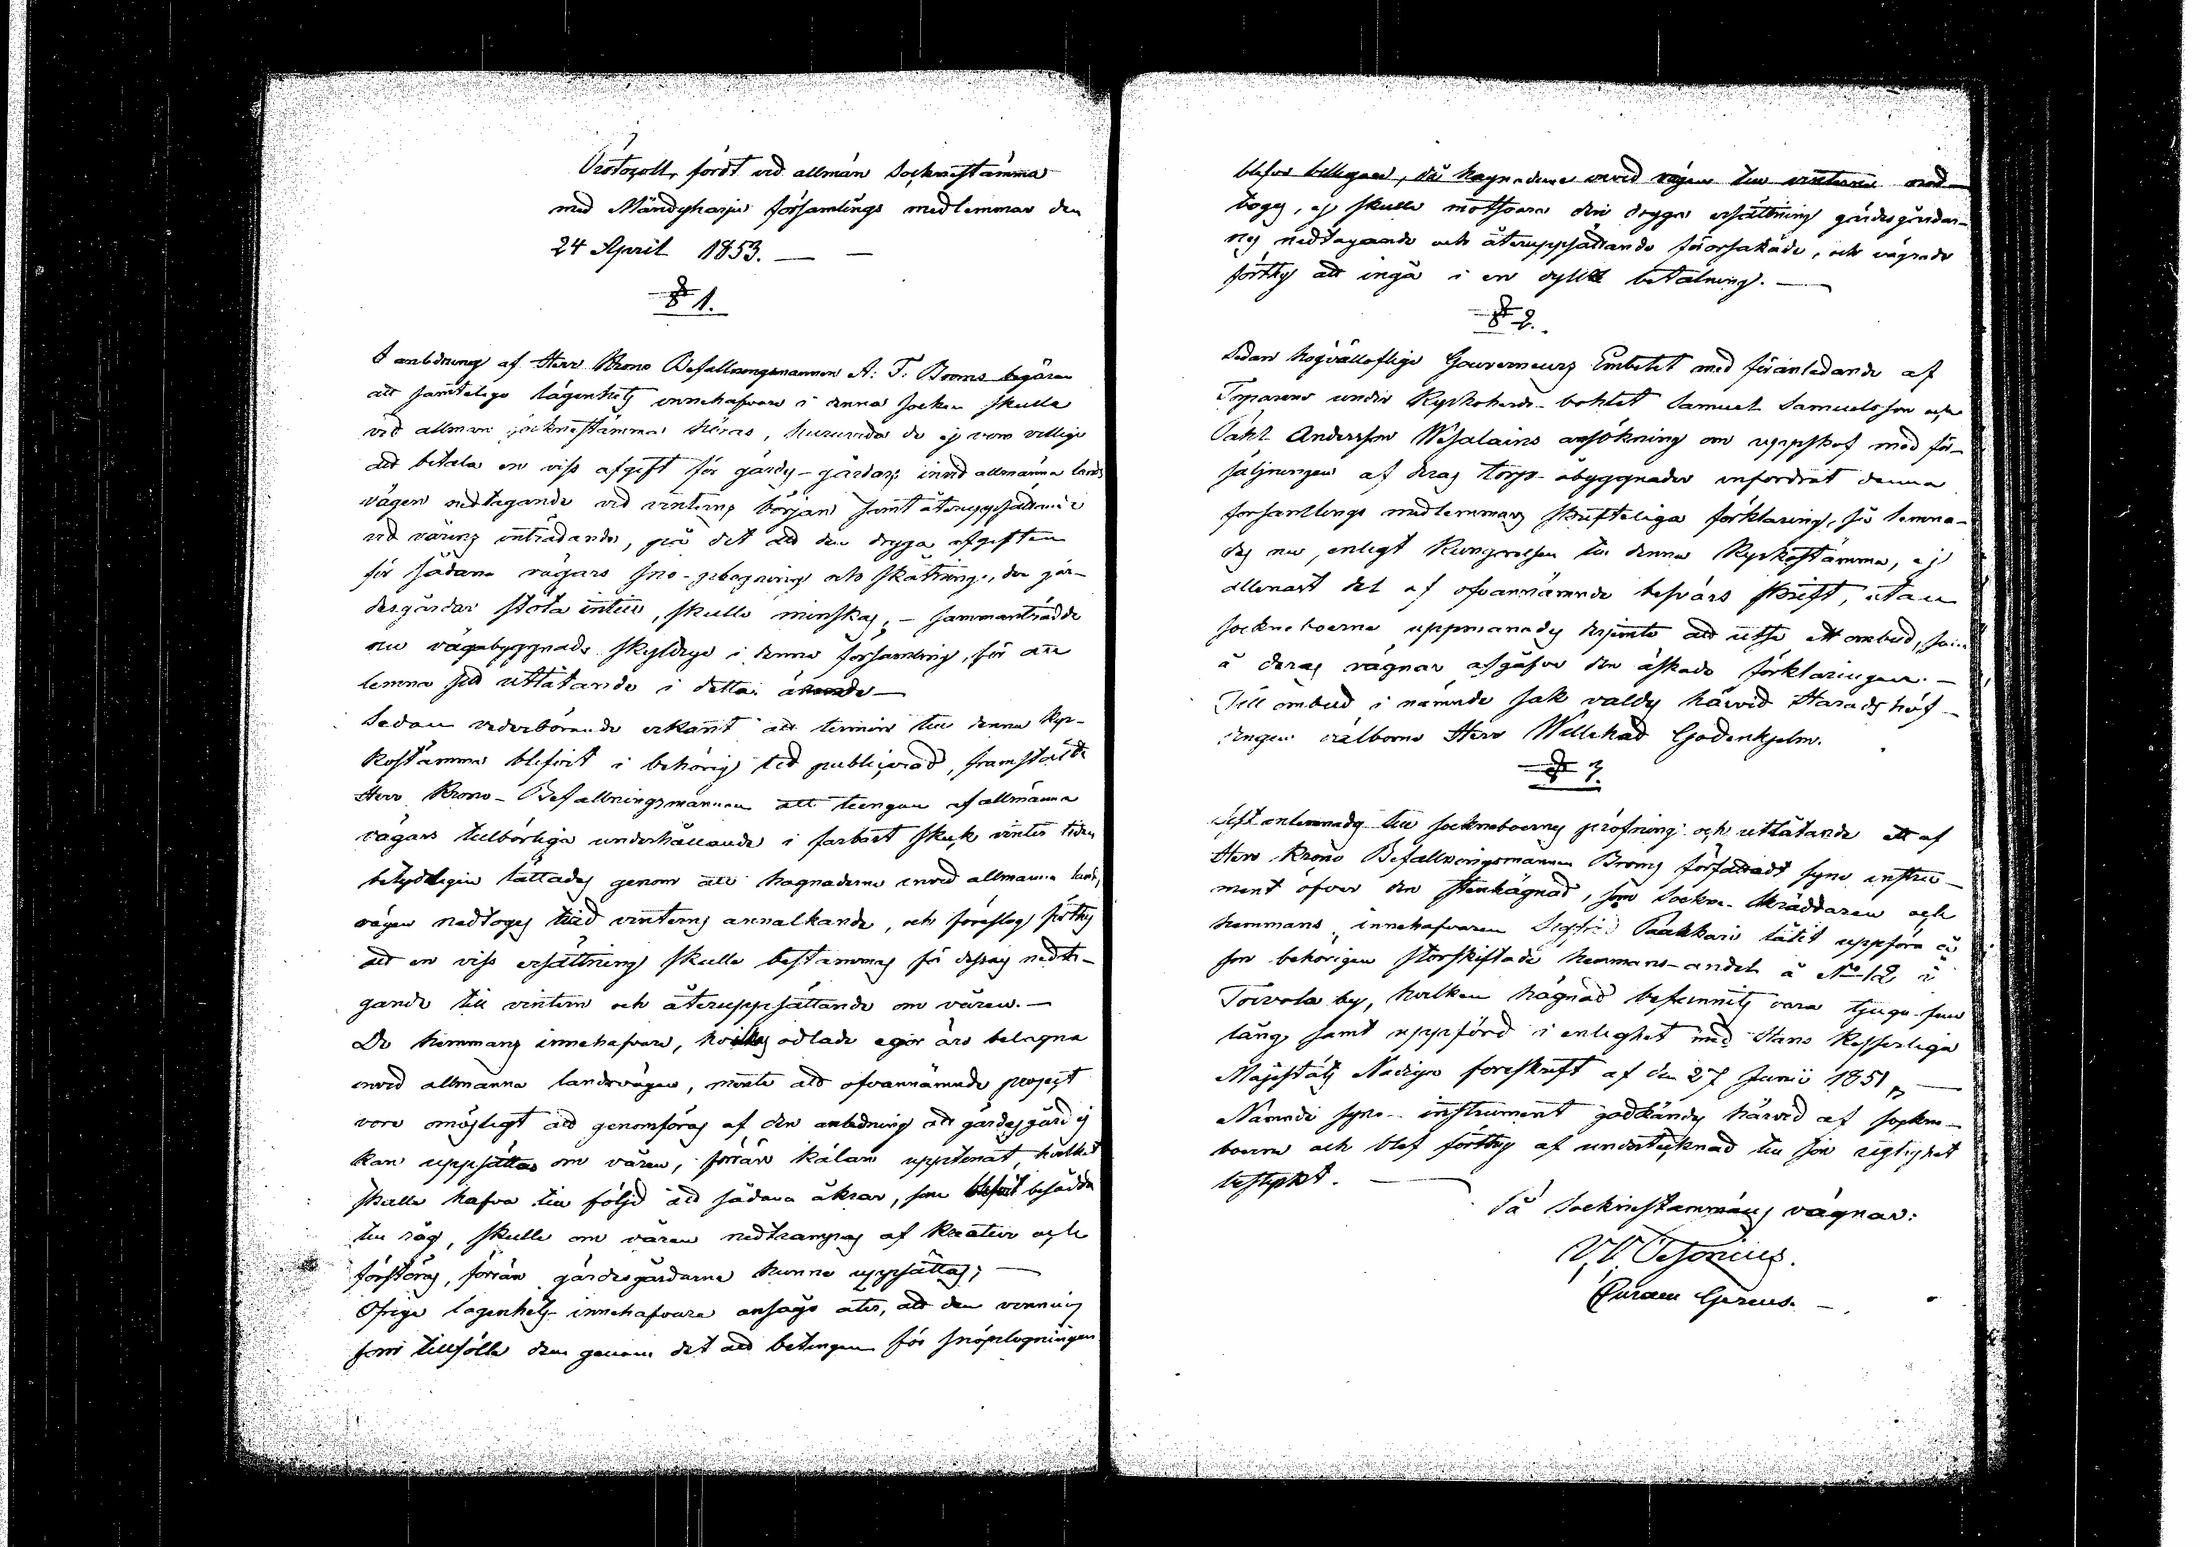 Protocoll, fördt vid allmän Socknestämma
med Mändyharju församlings medlemmar den
24 April 1853. — —
§ 1.
I anledning af Herr Krono Befallningsmannen A: T: Broms begäran
att samtelige lägenhets innehafvare i denna Socken skulle
vid allmän socknestämma höras, huruvida de ej vore villige
att betala en viss afgift för gärdes-gårdars invid allmänna lands
vägen nedtagande vid vinterns början samt återuppsättande
vid vårens inträdande, på det att den dryga afgiften
för sådana vägars snö-plogning och skottning, der gär-
desgårdar stöta intill, skulle minskas; — sammanträdde
nu vägabyggnads skyldige i denna församling, för att
lemna sitt utlåtande i detta ärende —
Sedan vederbörande erkänt att termin till denna Kyr-
kostämma blifvit i behörig tid publicerad, framstälde
Herr Krono-Befallningsmannen att tungan af allmänna
vägars tillbörliga underhållande i farbart skick vinter tiden
betydligen lättades genom att hagnaderne invid allmänna lands
vägen nedtoges vid vinterns annalkande, och föreslog förthy
att en viss ersättning skulle bestämmas för dessas nedta-
gande till vintern och återuppsättande om våren. —
De hemmans innehafvare, hvilkas odlade egor äro belägna
invid allmänna landsvägen, mente att ofvannämnde project
vore omöjligt att genomföras af den anledning att gärdesgård ej
kan uppsättas om våren, förrän kälan upptinat, hvilket
skulle hafva till följd att sådana åkrar, som blifvit besådda
till råg, skulle om våren nedtrampas af kreatur och
förstöras, förrän gärdesgårdarne hunne uppsättas; —
Öfrige lägenhets-innehafvare ansågo åter, att den vinning
som tillfölle dem genom det att betingen för snöplogningen
blefve billigare, då hagnaderne invid vägen till vintern ned-
toges, ej skulle motsvara den dryga ersättning gärdesgårdar-
nes nedtagande och återuppsättande förorsakade, och vägrade
förthy att ingå i en dylik betalning. —
§ 2.
Sedan högvällofliga Gouverneurs Embetet med föranledande af
Torparene under Kyrkoherde-bohlet Samuel Samuelsson och
Påhl Andersson Wesalains ansökning om uppskof med för-
säljningen af deras torp-åbyggnader infordrat denna
församlings medlemmars skrifteliga förklaring, så lemna-
des nu, enligt kungörelsen till denna Kyrkostämma, ej
allenast del af ofvannämnde besvärs skrift, utan
sockneboerne uppmanades desjemte att utse ett ombud, som
å deras vägnar afgåfve den äskade förklaringen. —
Till ombud i nämnde sak valdes härvid Häradshöf-
dingen välborne Herr Willehad Godenhjelm.
§ 3.
Sist anlemnades till sockneboernes pröfning och utlåtande ett af
Herr Krono Befallningsmannen Broms författadt syne instru-
ment öfver den stenhägnad, som Sockne-Skräddaren och
hemmans innehafvaren Sigfrid Paakkari låtit uppföra å
sin behörigen storskiftade hemmans-andel å No 12 i
Toivola by, hvilken hägnad befunnits vara tjugu famn
lång, samt uppförd i enlighet med Hans Kejserliga
Majestäts Nådiga föreskrift af den 27 Junii 1851. —
Nämnde syne-instrument godkändes härvid af sockne-
boerne och blef förthy af undertecknad till sin rigtighet
bestyrkt. —
På Socknestämmans vägnar: